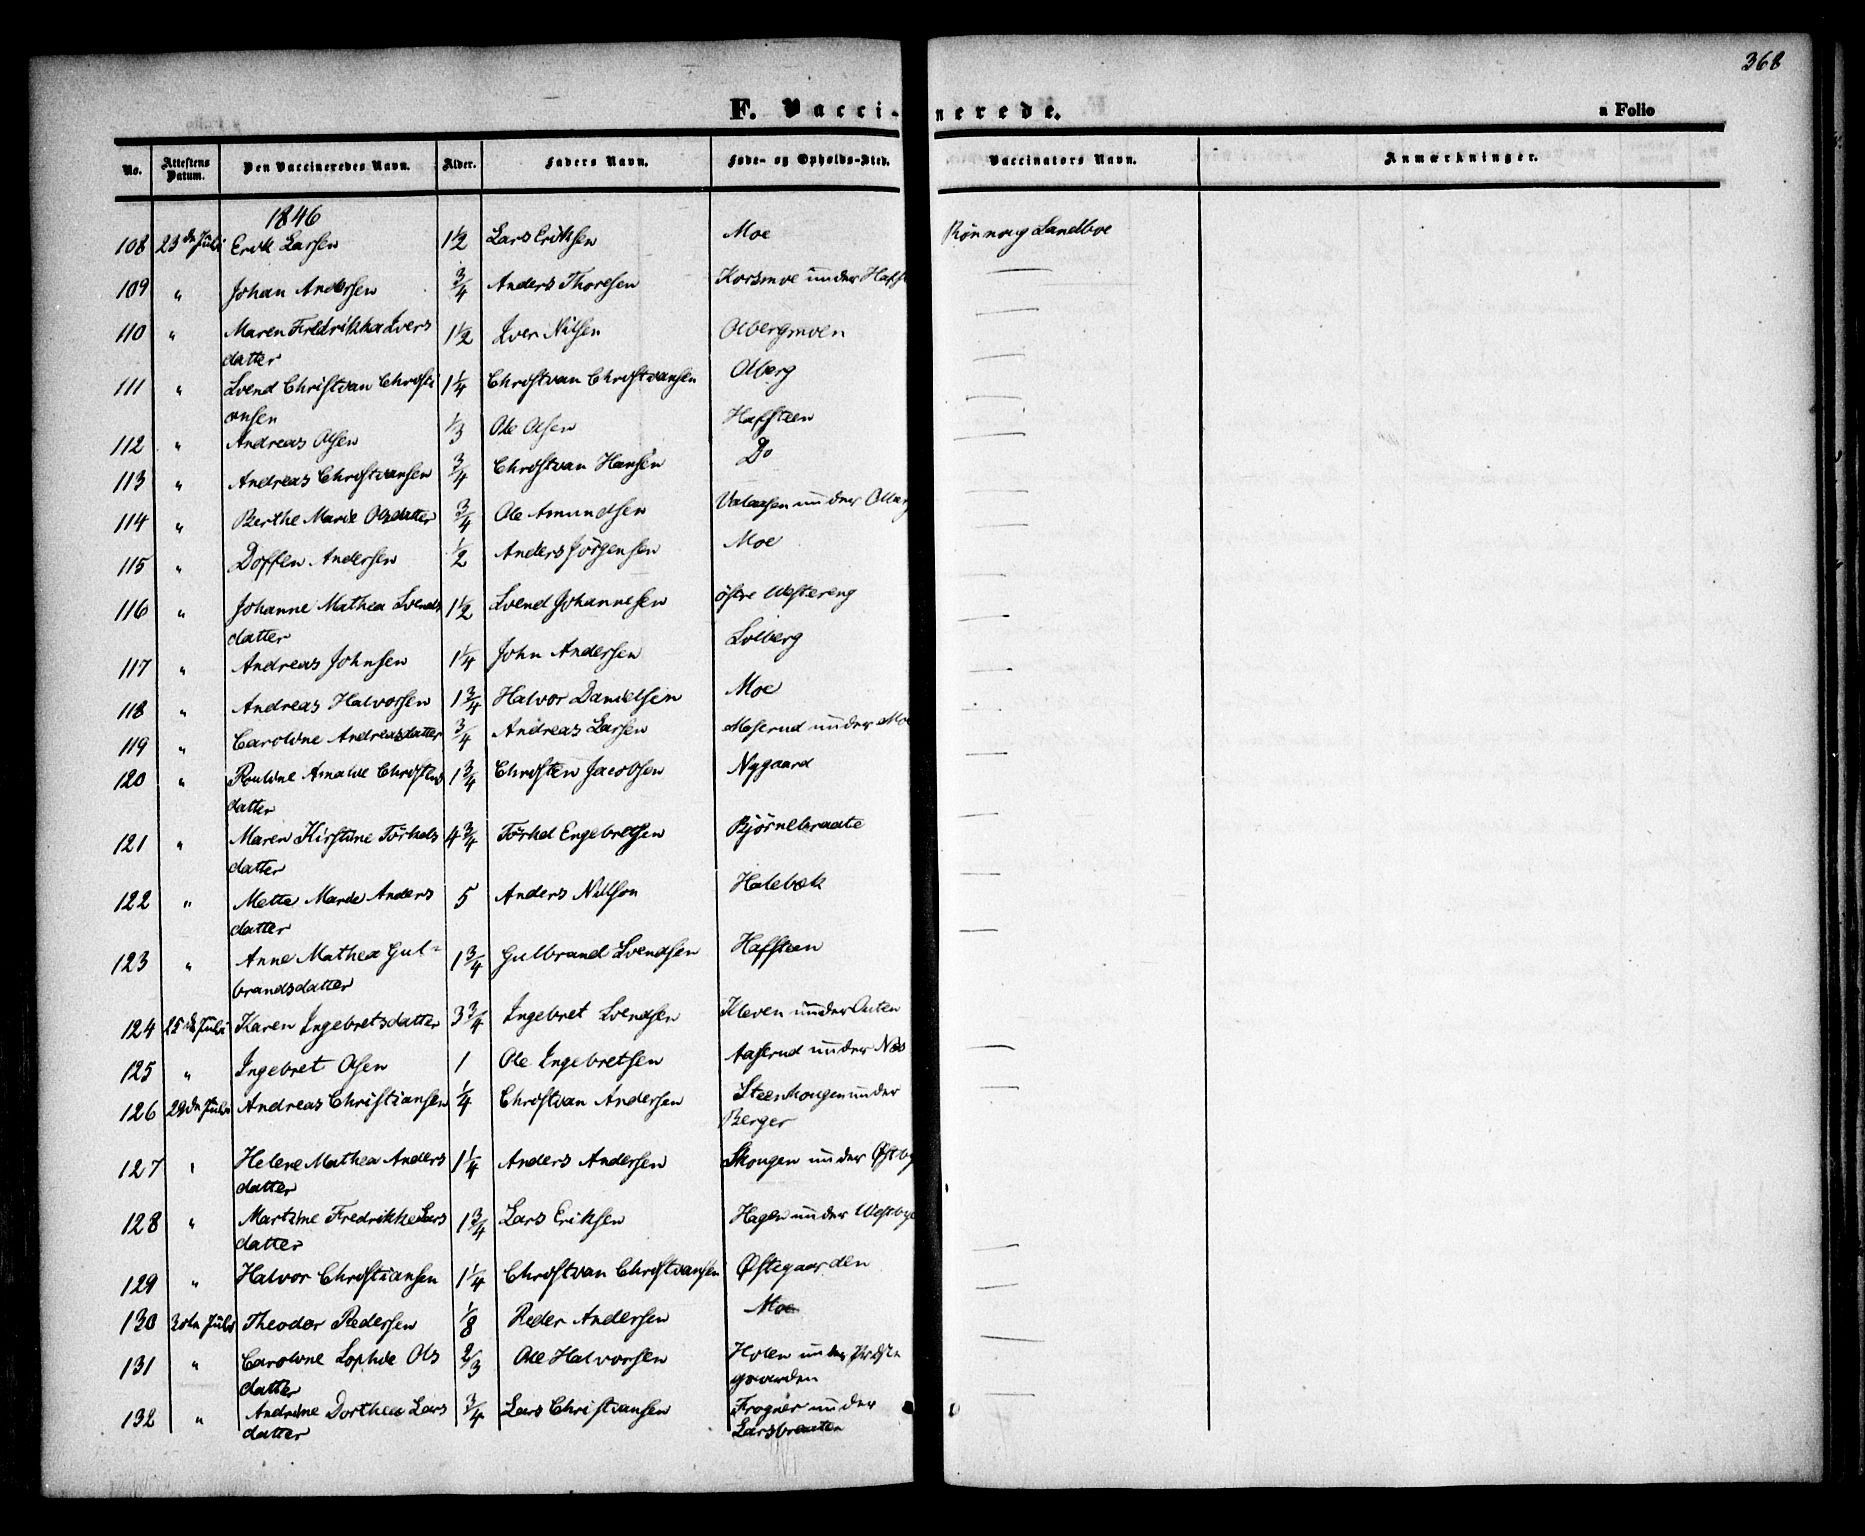 368
F. Vaccinerede.
a Folio
No. Attestens Datum. Den Vaccineredes Navn. Alder. Faders Navn. Føde- og Opholds-Sted. Vaccinators Navn. Anmærkninger.
1846
108 23de Juli Erik Larsen 1½ Lars Eriksen Moe Rönnoug Sandboe
109 " Johan Andersen ¾ Anders Thoresen Korsmoe under Hafst
110 " Maren Fredrikka Ivers 1½ Iver Nilsen Olbergmoen
datter
111 " Svend Christian Christi 1¼ Christian Christiansen Olberg
ansen
112 " Andreas Olsen ⅓ Ole Olsen Haffsteen
113 " Andreas Christiansen ¾ Christian Hansen Do
114 " Berthe Marie Olsdatter ¾ Ole Amundsen under Olberg
115 " Doffen Andersen ½ Anders Jörgensen Moe
116 " Johanne Mathea Svends 1½ Svend Johannesen östre Westereng
datter
117 " Andreas Johnsen 1¼ John Andersen Solberg
118 " Andreas Halvorsen 1¾ Halvor Danielsen Moe
119 " Caroline Andreasdatter ¾ Andreas Larsen Moserud under Moe
120 " Pouline Amalie Christens 1¾ Christen Jacobsen Nygaard
datter
121 " Maren Kirstine Törkels 4¾ Törkel Engebretsen Björnebraate
datter
122 " Mette Marie Anders 5 Anders Nilson Holebek
datter
123 " Anne Mathea Gul= 1¾ Gulbrand Svendsen Haffsteen
brandsdatter
124 25de Juli Karen Ingebretsdatter 3¾ Ingebret Svendsen Kleven under Auten
125 " Ingebret Olsen 1 Ole Ingebretsen Aaserud under Næs
126 29de Juli Andreas Christiansen ¼ Christian Andersen Steenhougen under
Berger
127 " Helene Mathea Anders 1¼ Anders Andersen Skougen under Østby
datter
128 " Martine Fredrikke Lars 1¾ Lars Eriksen Hagen under Westbye
datter
129 " Halvor Christiansen 1¼ Christian Christiansen Østegaarden
130 30te Juli Theodor Pedersen ⅛ Peder Andersen Moe
131 " Caroline Sophie Ols ⅔ Ole Halvorsen Holen under Præste
datter gaarden
132 " Andrine Dorthea Lars ¾ Lars Christiansen Frogner under
datter Larsbraaten